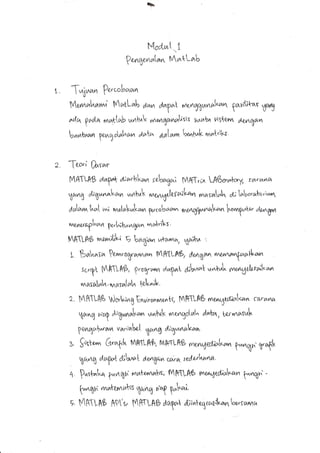 Modul 1
Pengenalan MatLab
1. Tujuan Percobaan
Memahami MatLab dan dapat menggunakan fasilitas yang
ada pada matlab untuk menganalisis suatu sistem dengan
bantuan pengolahan data dalam bentuk matriks.
2. Teori Dasar
MATLAB dapat diartikan sebagai MATrix LABoratory, sarana
yang digunakan untuk menyelesaikan masalah di laboratorium,
dalam hal ini melakukan percobaan menggunakan komputer dengan
menerapkan perhitungan matriks.
MATLAB memiliki 5 bagian utama, yaitu :
1. Bahasa Pemrograman MATLAB, dengan memanfaatkan
script MATLAB, program dapat dibuat untuk menyelesaikan
masalah-masalah teknik.
2. MATLAB Working Environments, MATLAB menyediakan sarana
yang siap digunakan untuk mengolah data, termasuk
pengaturan variabel yang digunakan.
3. Sistem Grafik MATLAB, MATLAB menyediakan fungsi grafik
yang dapat dibuat dengan cara sederhana.
4. Pustaka fungsi matematis, MATLAB menyediakan fungsi-
fungsi matematis yang siap pakai.
5. MATLAB API's, MATLAB dapat diintegrasikan bersama